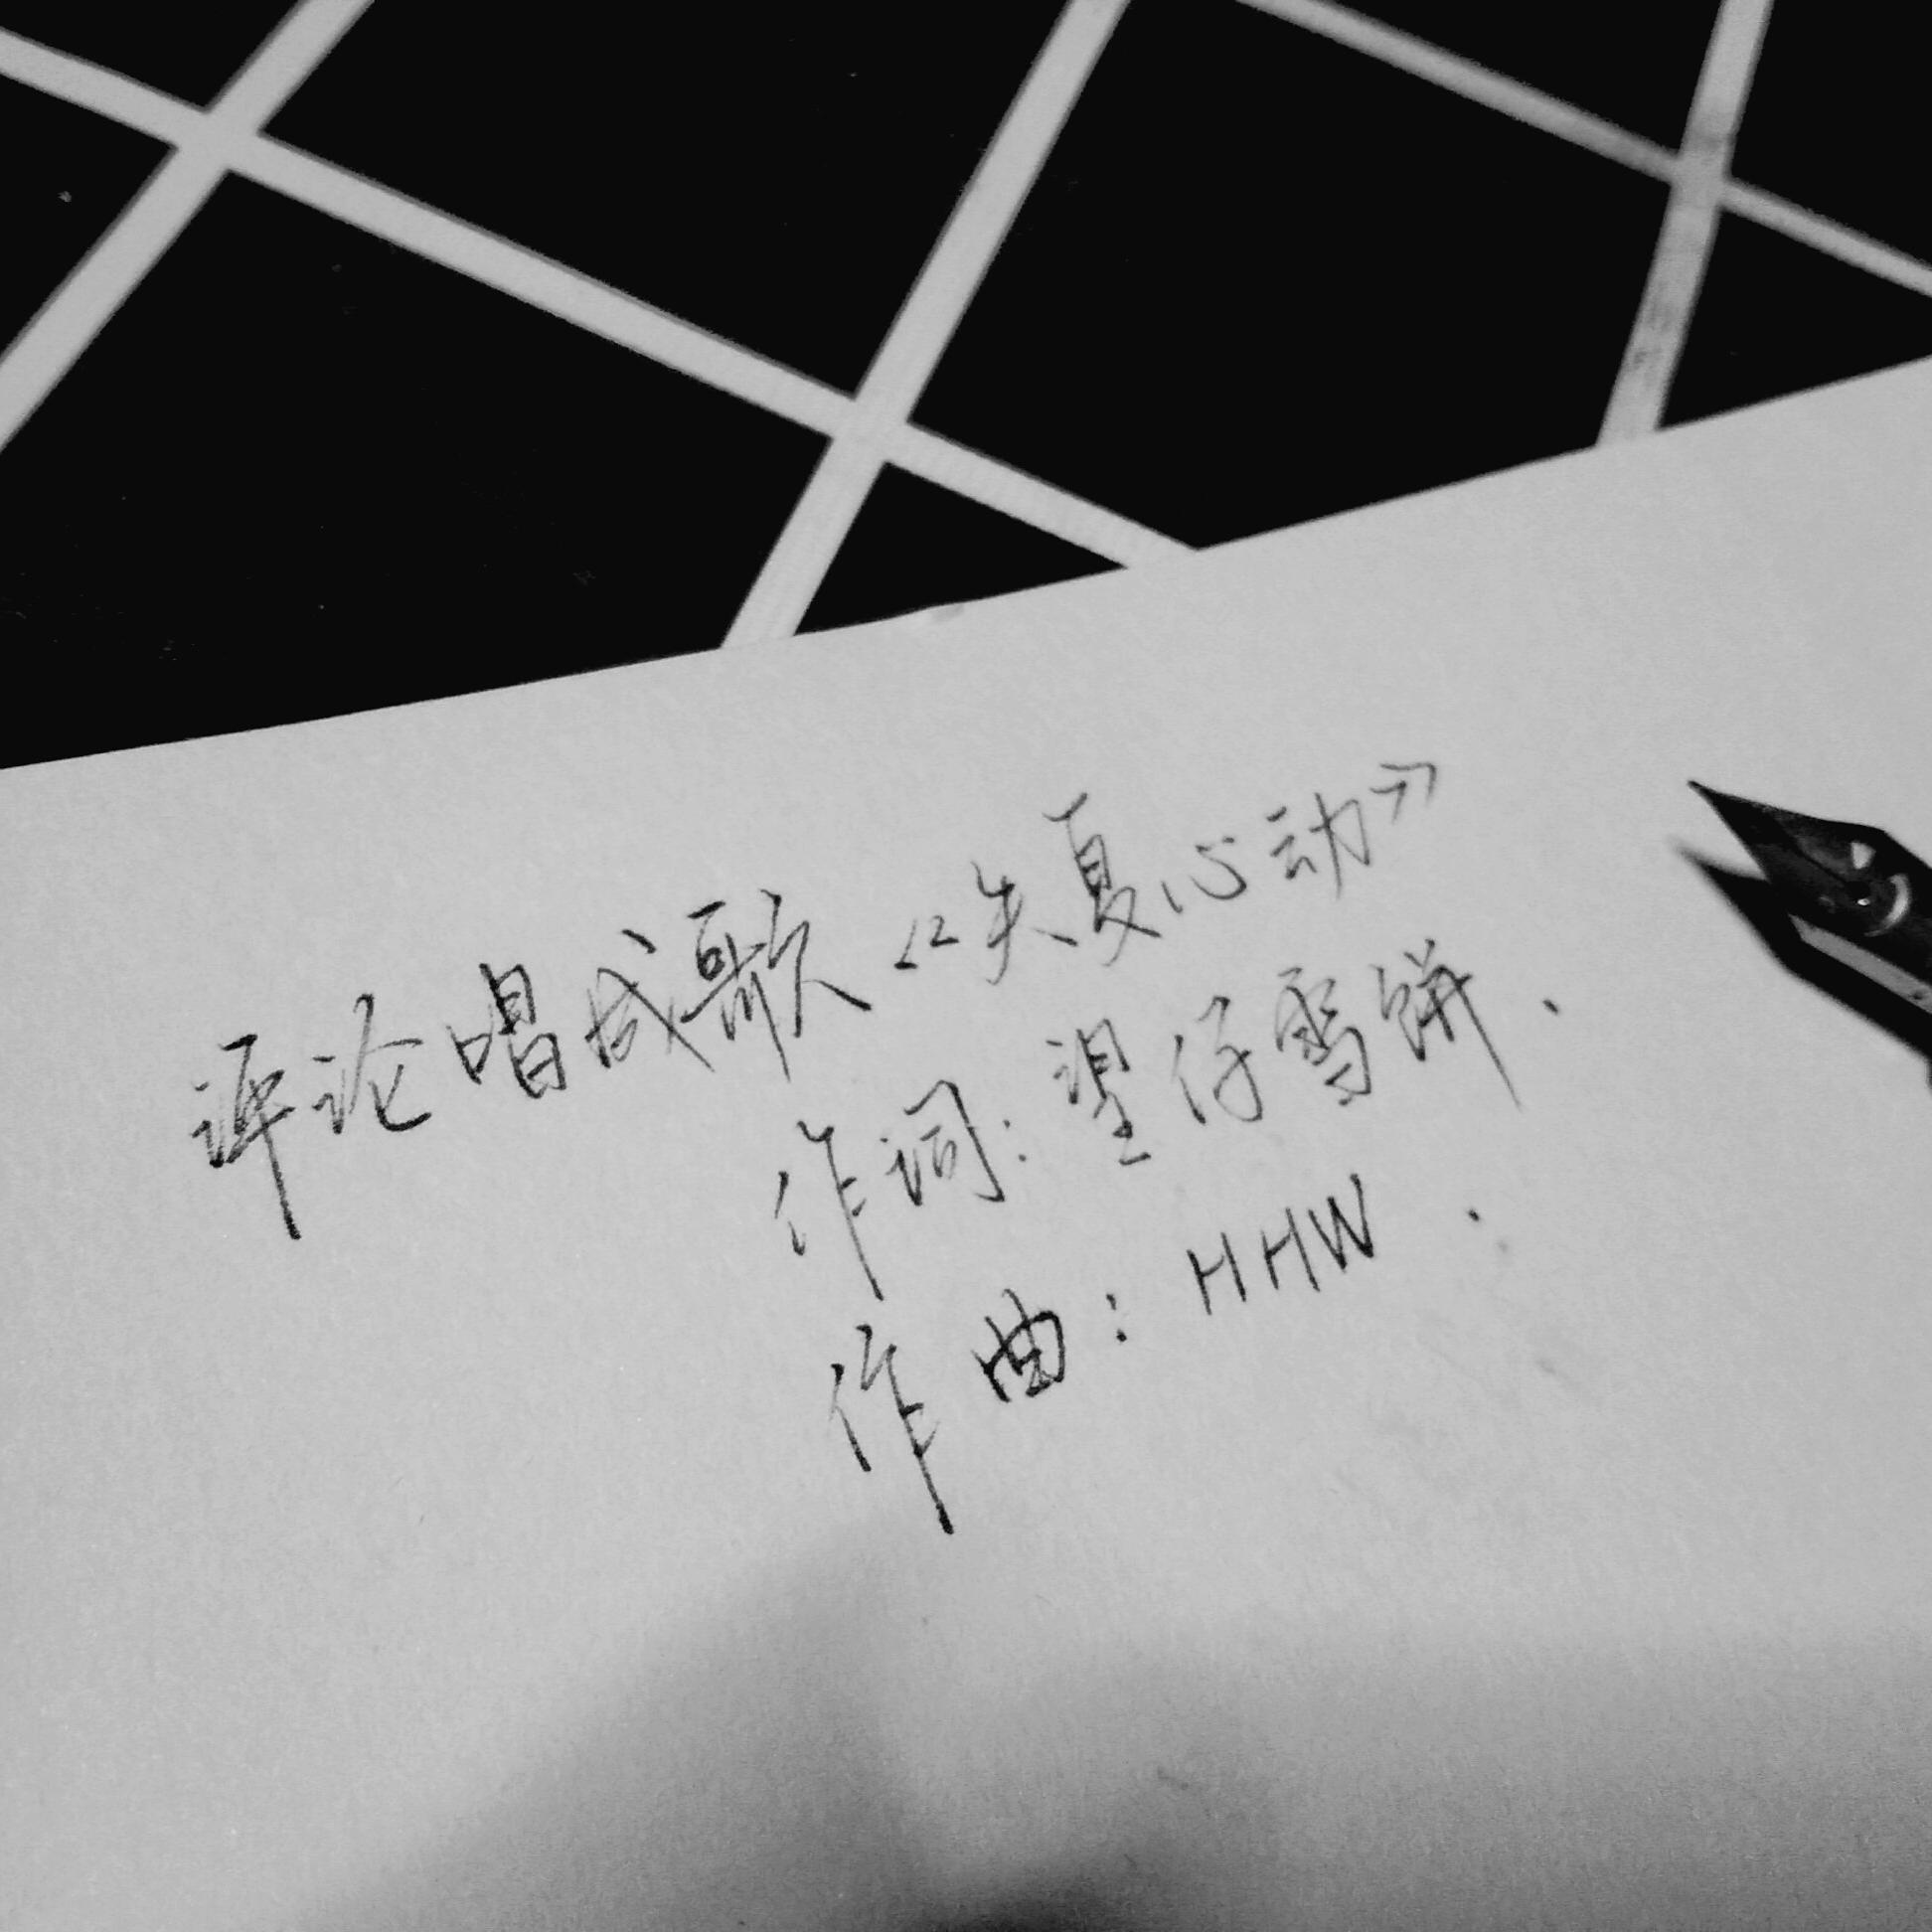 评论唱成歌《失夏心动》
作词：望仔雪饼、
作曲：HHW .